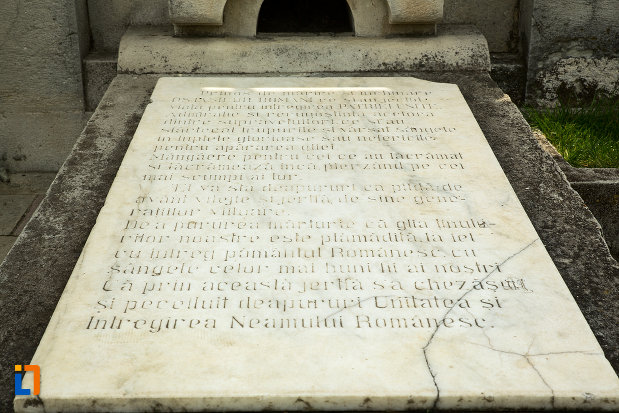 Prinos de mărire și închinare
ce și-au jertfit
viața pentru întregirea PATRIEI SI
Admirație și recunoștință acelora
dintre supraviețuitori care și-au
trupurile și vărsat sângele
în luptele glorioase sau nefericite
pentru apărarea ei.
Mângăere pentru cei ce au lăcrămat
și lăcrămează încă pierzând pe cei
mai scumpi ai lor.
El va sta deapururi ca pildă de
avânt vitejie și jertfă de sine gene-
rațiilor viitoare.
De-a pururea mărturie că glia ținutu-
rilor noastre este plămădită, la fel
cu întreg pământul Românesc, cu
sângele celor mai buni fii ai noștri
Că prin această jertfă s'a chezășuit
și pecetluit deapururi Unitatea și
Întregirea Neamului Românesc.